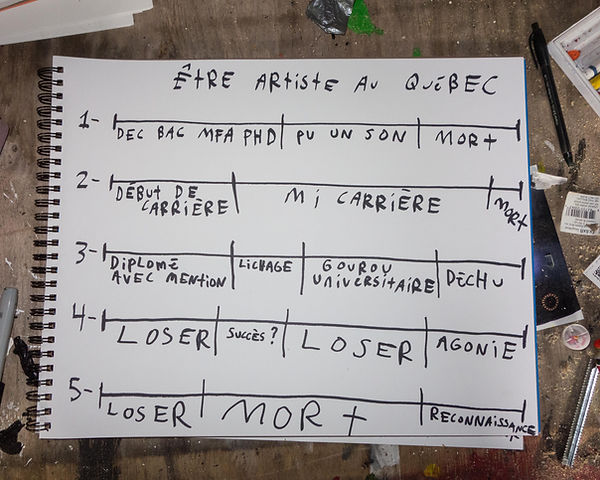 ÊTRE ARTISTE AU QUÉBEC
1- DEC BAC MFA PHD PU UN SON MORT
2- DÉBUT DE CARRIÈRE MI CARRIÈRE MORT
3- DIPLOMÉ AVEC MENTION LICHAGE GOUROU UNIVERSITAIRE DÉCHU
4- LOSER SUCCÈS? LOSER AGONIE
5- LOSER MORT RECONNAISSANCE